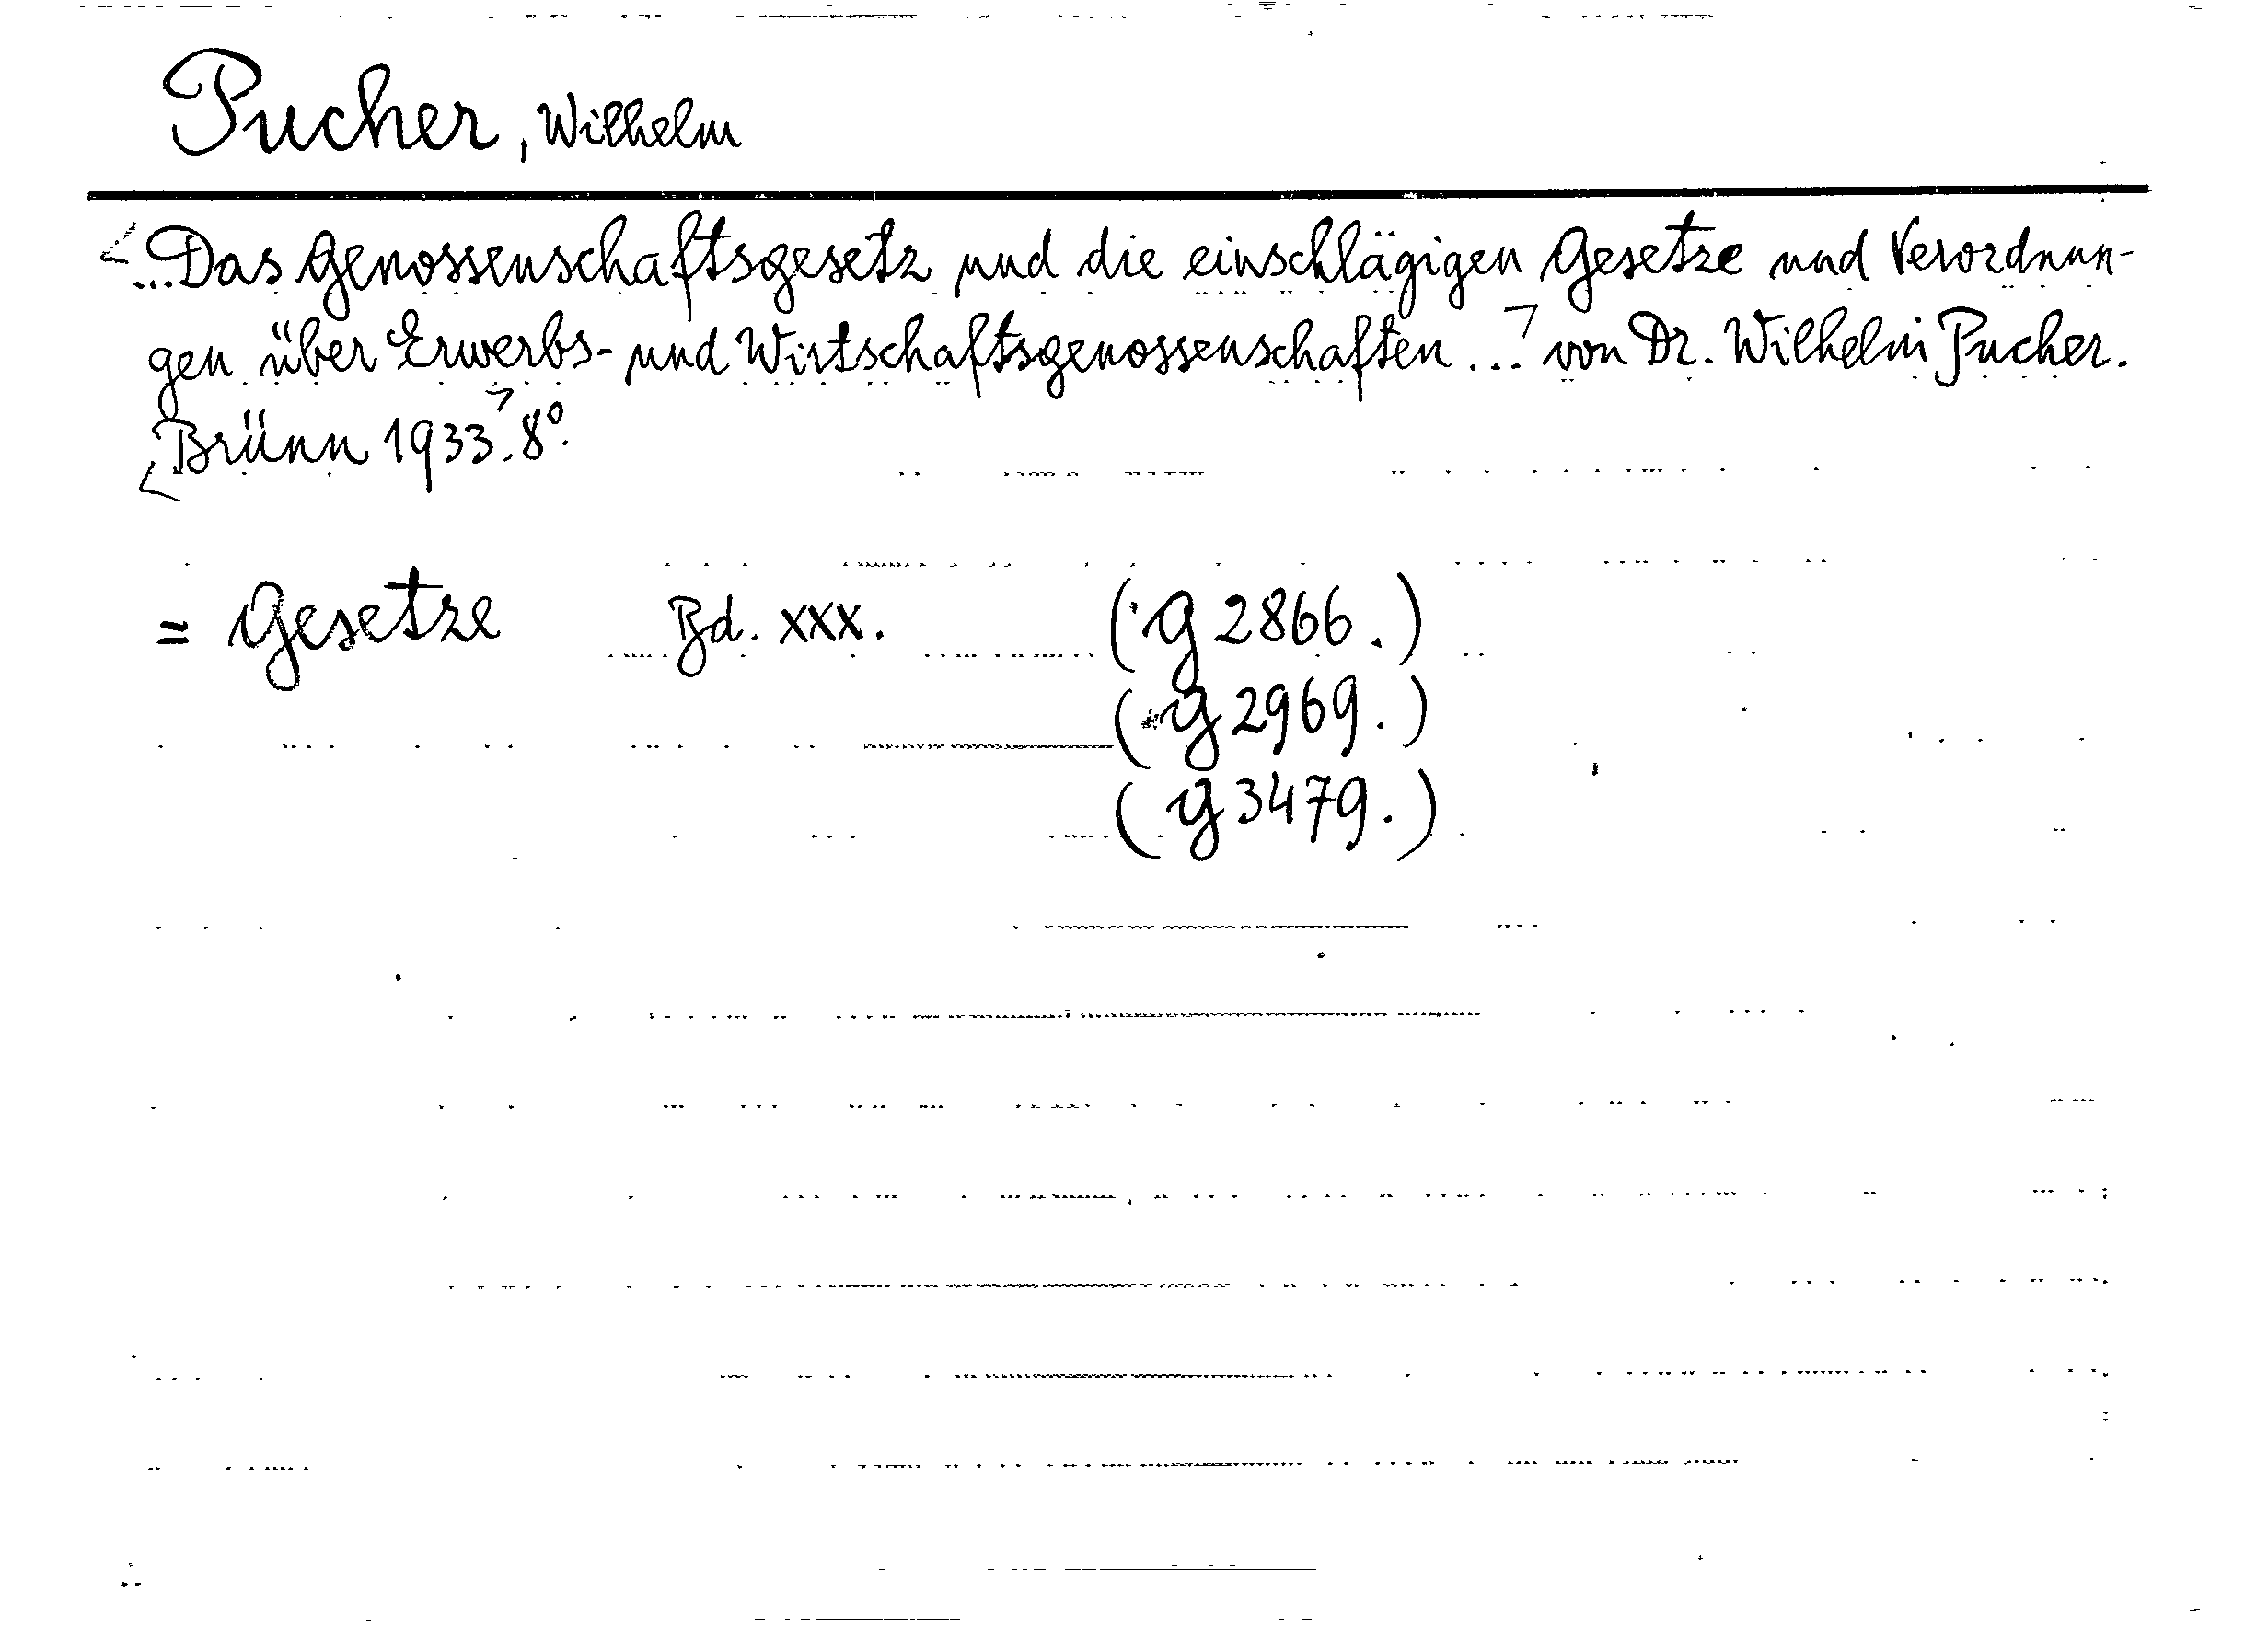 Pucher, Wilhelm
...Das Genossenschaftsgesetz und die einschlägigen Gesetze und Verordnun-
gen über Erwerbs- und Wirtschaftsgenossenschaften ... von Dr. Wilhelm Pucher.
Brünn 1933. 8°.
= Gesetze Bd. XXX. (G 2866.)
(G 2969.)
(G 3479.)